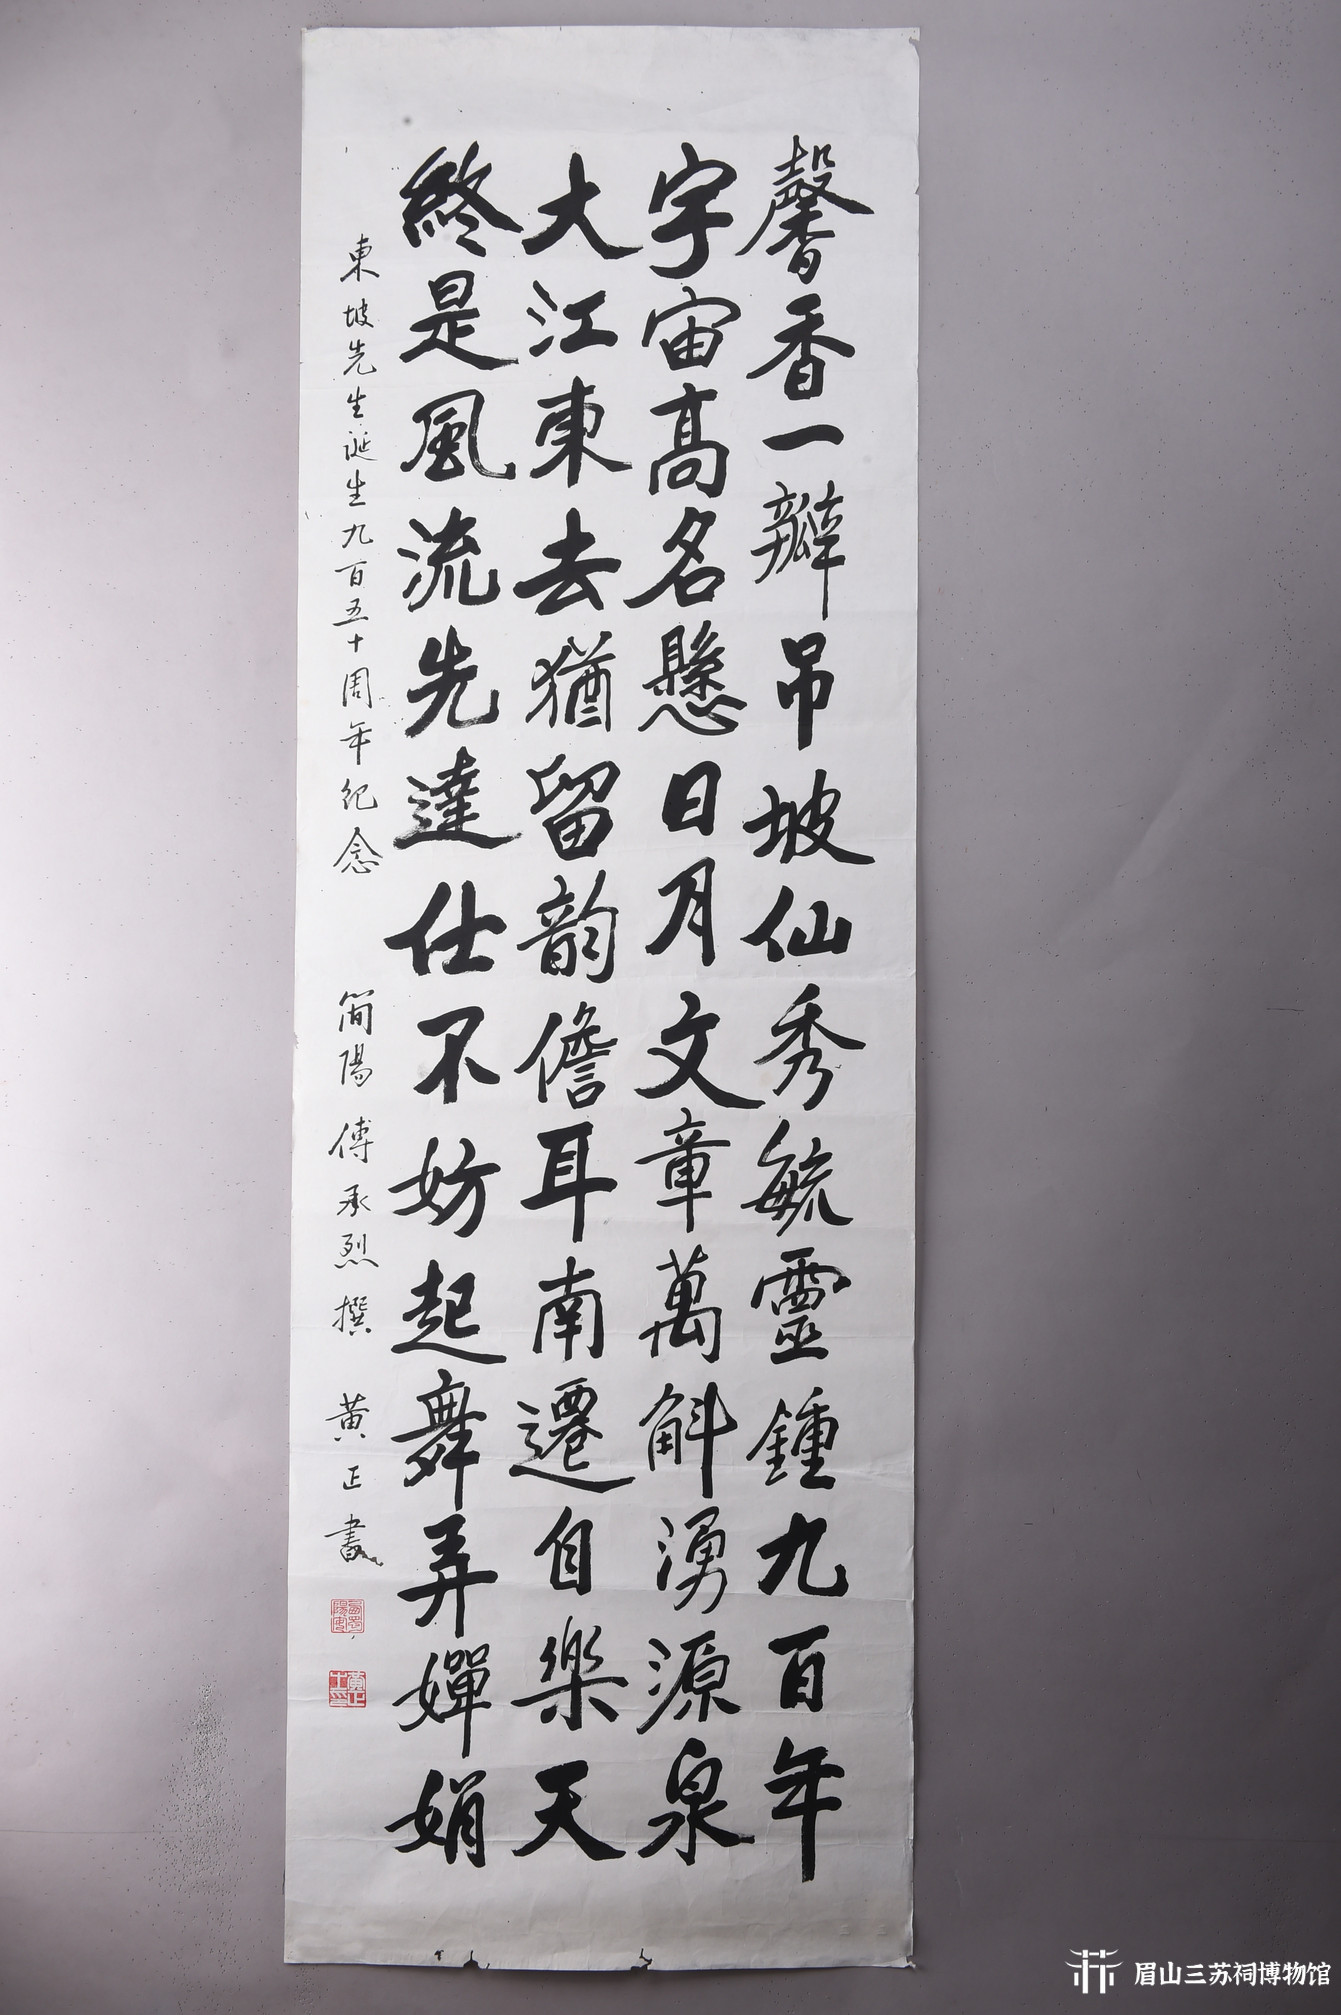 馨香一瓣吊坡仙秀毓靈鍾九百年
宇宙高名懸日月文章萬斛湧源泉
大江東去猶留韵儋耳南遷自樂天
終是風流先達仕不妨起舞弄嬋娟
東坡先生誕生九百五十周年紀念 簡陽傅承烈撰 黄正書
眉山三苏祠博物馆